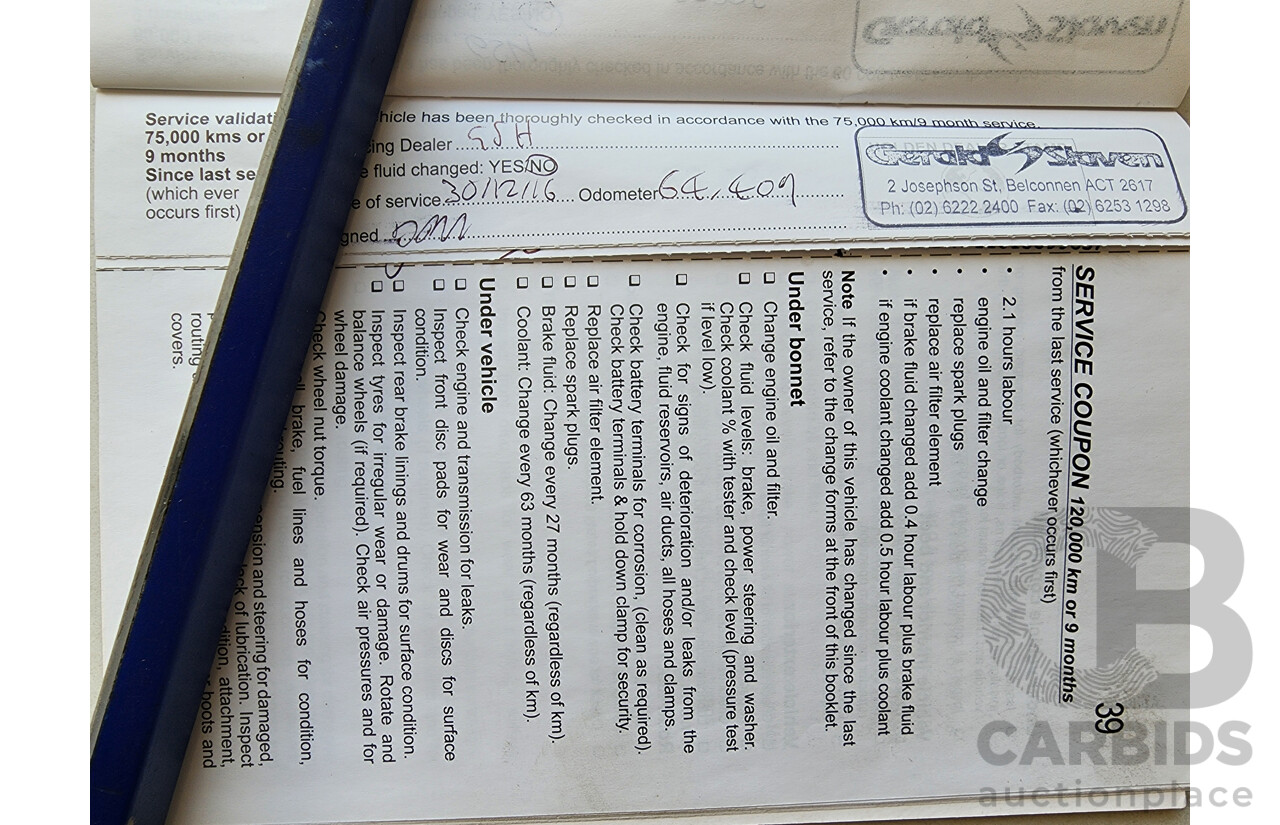 Service validati
75,000 kms or
9 months
Since last se
(which ever
occurs first)
hicle has been thoroughly checked in accordance with the 75,000 km/9 month service.
ing Dealer GSH
e fluid changed: YES/NO
e of service 30/12/16 Odometer 64,409
gned
Gerald Slaven
2 Josephson St, Belconnen ACT 2617
Ph: (02) 6222 2400 Fax: (02) 6253 1298
39
SERVICE COUPON 120,000 km or 9 months
from the last service (whichever occurs first)
• 2.1 hours labour
• engine oil and filter change
• replace spark plugs
• replace air filter element
• if brake fluid changed add 0.4 hour labour plus brake fluid
• if engine coolant changed add 0.5 hour labour plus coolant
Note If the owner of this vehicle has changed since the last
service, refer to the change forms at the front of this booklet.
Under bonnet
❏ Change engine oil and filter.
❏ Check fluid levels: brake, power steering and washer.
Check coolant % with tester and check level (pressure test
if level low).
❏ Check for signs of deterioration and/or leaks from the
engine, fluid reservoirs, air ducts, all hoses and clamps.
❏ Check battery terminals for corrosion, (clean as required),
Check battery terminals & hold down clamp for security.
❏ Replace air filter element.
❏ Replace spark plugs.
❏ Brake fluid: Change every 27 months (regardless of km).
❏ Coolant: Change every 63 months (regardless of km).
Under vehicle
❏ Check engine and transmission for leaks.
❏ Inspect front disc pads for wear and discs for surface
condition.
❏ Inspect rear brake linings and drums for surface condition.
❏ Inspect tyres for irregular wear or damage. Rotate and
balance wheels (if required). Check air pressures and for
wheel damage.
Check wheel nut torque.
brake, fuel lines and hoses for condition,
outing.
ension and steering for damaged,
lack of lubrication. Inspect
dition, attachment,
boots and
routing
covers.
CARBIDS
auctionplace